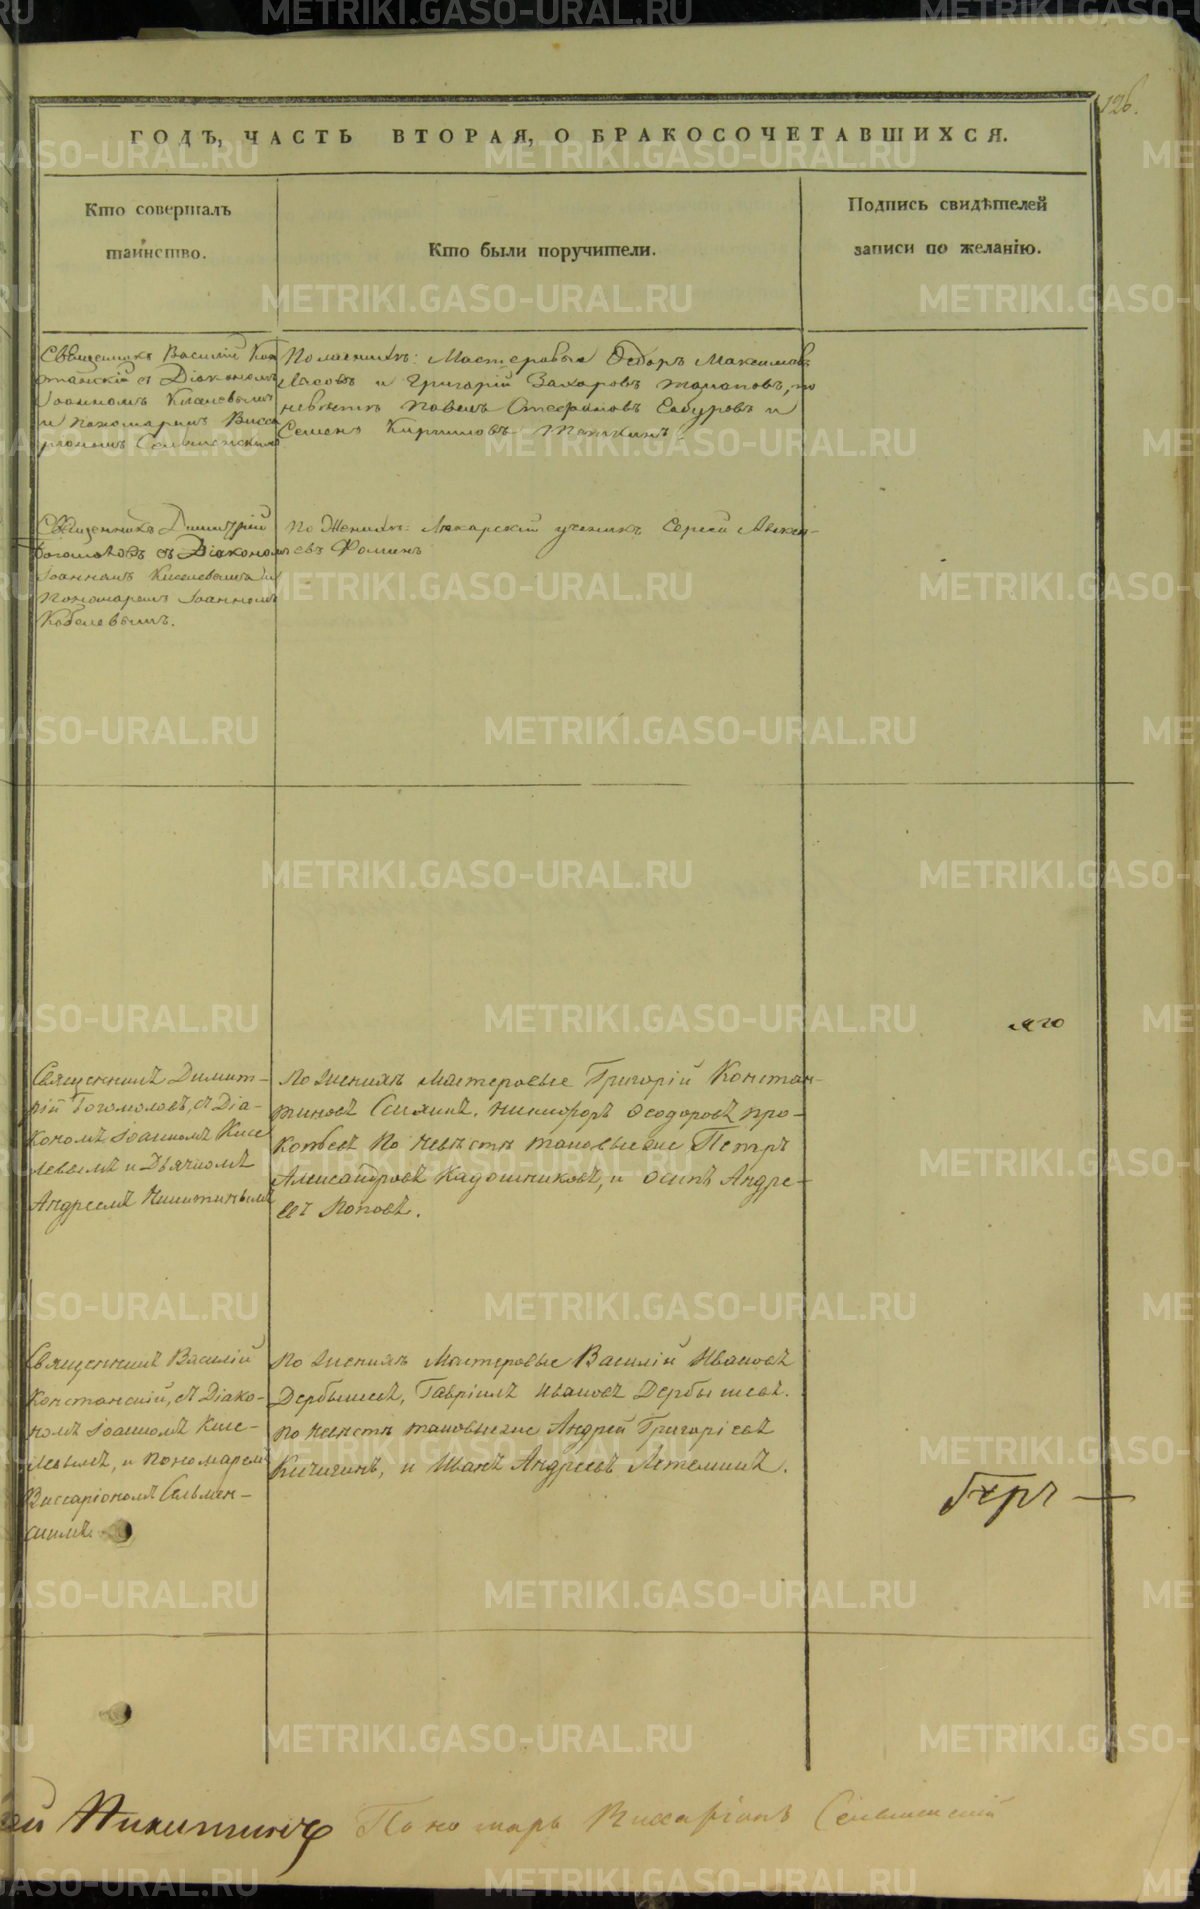 126.
ГОДЪ, ЧАСТЬ ВТОРАЯ, О БРАКОСОЧЕТАВШИХСЯ.
Кто совершалъ
таинство.
Кто были поручители.
Подпись свидѣтелей
записи по желанію.
Священникъ Василій
съ Діакономъ
Іоанномъ Киселевымъ
и пономаремъ Висса
ріономъ
По женихѣ: Мастеровые Ѳедоръ Максимовъ
и Григорій Захаровъ по
невѣстѣ Павелъ Стефановъ Сабуровъ и
Семенъ Кириловъ
Священникъ Димитрій
Богомоловъ съ Діаконом
Іоанномъ Киселевымъ и
Пономаремъ Іоанномъ
Кобелевымъ.
По Женихѣ: Лекарскій ученикъ Сергей Алексѣ-
евъ Фоминъ
яго
Священникъ Димит-
рій Богомоловъ, съ Діа-
кономъ Іоанномъ Кисе
левымъ и Дьячкомъ
Андреемъ Никитинымъ
по женихѣ мастеровые Григорій Констан-
тиновъ никифоръ Ѳеодоровъ про-
копьевъ По невѣстѣ таковыеже Петръ
Александровъ Кадошниковъ, и осипъ Андре-
евъ Поповъ.
Священникъ Василій
Конста­нскій, съ Діако-
номъ Іоанномъ Кисе-
левымъ, и пономаремъ
Виссаріономъ Сельмен-
скимъ.
по женихѣ Мастеровые Василій Ивановъ
Дербышевъ, Гавріилъ Ивановъ Дербышевъ.
по невѣстѣ таковыеже Андрей Григоріевъ
Кичигинъ, и Иванъ Андреевъ Летеминъ.
ей Никитинъ Пономарь Виссаріонъ Сельменскій
METRIKI.GASO-URAL.RU